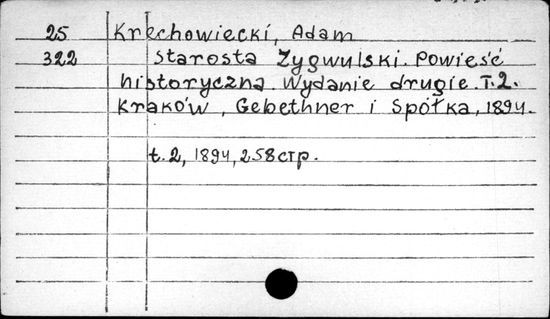 25 Krechowiecki, Adam
322 Starosta Zygwulski. Powieść
historyczna. Wydanie drugie. T.2.
Kraków, Gebethner i Spółka, 1894.
t.2, 1894, 258 стр.